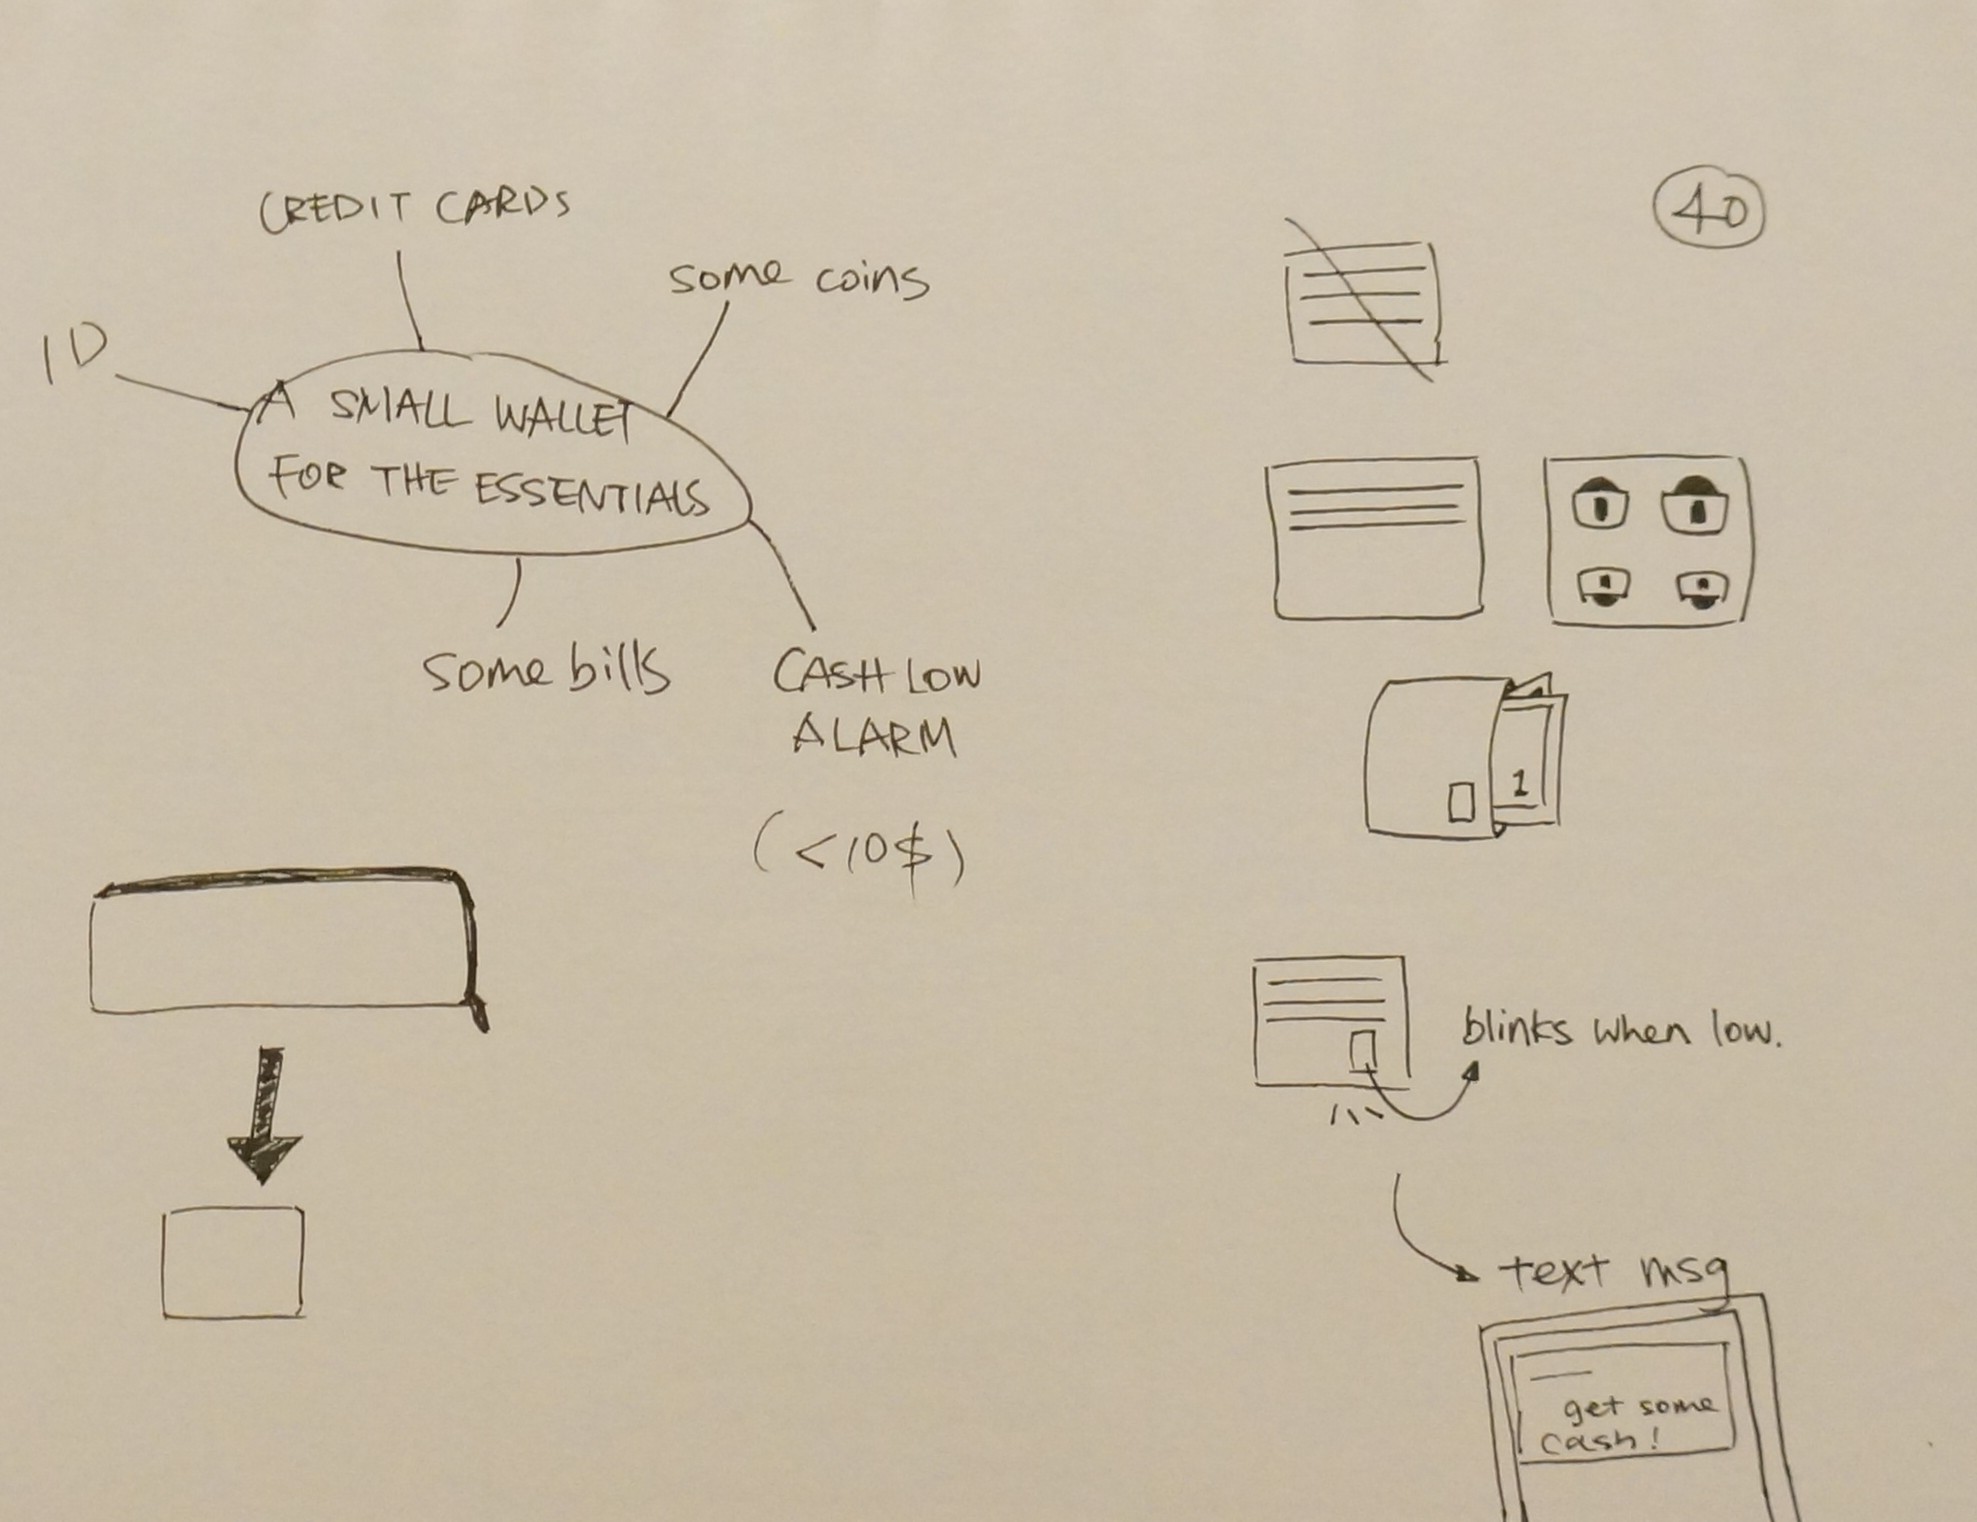 CREDIT CARDS
some coins
ID
A SMALL WALLET
FOR THE ESSENTIALS
some bills
CASH LOW
ALARM
(<10$)
40
1
blinks when low.
text msg
get some
cash!